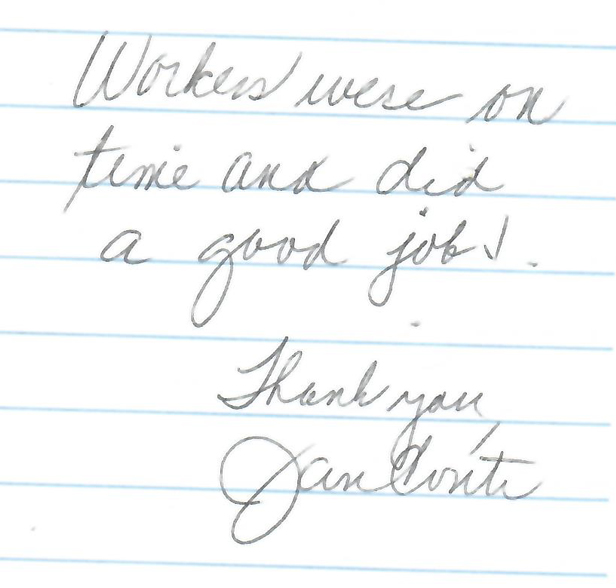 Workers were on
time and did
a good job!.
Thank you,
Jan Conti